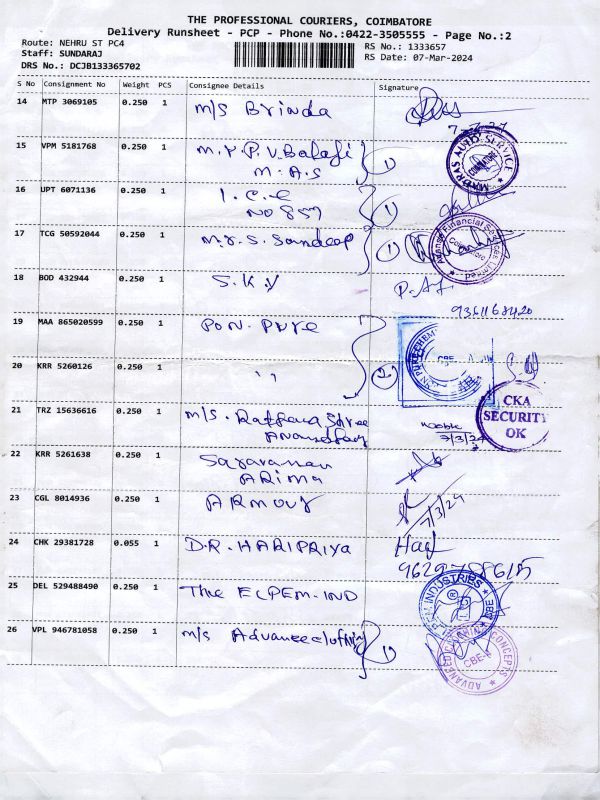 THE PROFESSIONAL COURIERS, COIMBATORE
Delivery Runsheet - PCP - Phone No.:0422-3505555 - Page No.:2
Route: NEHRU ST PC4
RS No.: 1333657
Staff: SUNDARAJ
RS Date: 07-Mar-2024
DRS No.: DCJB133365702
S No Consignment No Weight PCS Consignee Details Signature
14 MTP 3069105 0.250 1 M/S Brinda
15 VPM 5181768 0.250 1 M.Y.P.V.Balaji
M.A.S
1
MADRAS AUTO SERVICE
16 UPT 6071136 0.250 1 I.C.E
NO 857
1
17 TCG 50592044 0.250 1 Mr.S. Sandeep
1
Financial Services Limited
18 BOD 432944 0.250 1 S.K.V
9361168420
19 MAA 865020599 0.250 1 PON. PURE
20 KRR 5260126 0.250 1 ,,
2
21 TRZ 15636616 0.250 1 M/S. Rathna Shree
7/3/24
CKA
SECURITY
OK
22 KRR 5261638 0.250 1 Saravanan
ARIMA
23 CGL 8014936 0.250 1 ARMOUR
7/3/24
24 CHK 29381728 0.055 1 D.R. HARIPRIYA
25 DEL 529488490 0.250 1 The ELPEM-IND
INDUSTRIES
CBE
26 VPL 946781058 0.250 1 M/S Advance
1
ADVANCED
CONCEPTS
CBE-